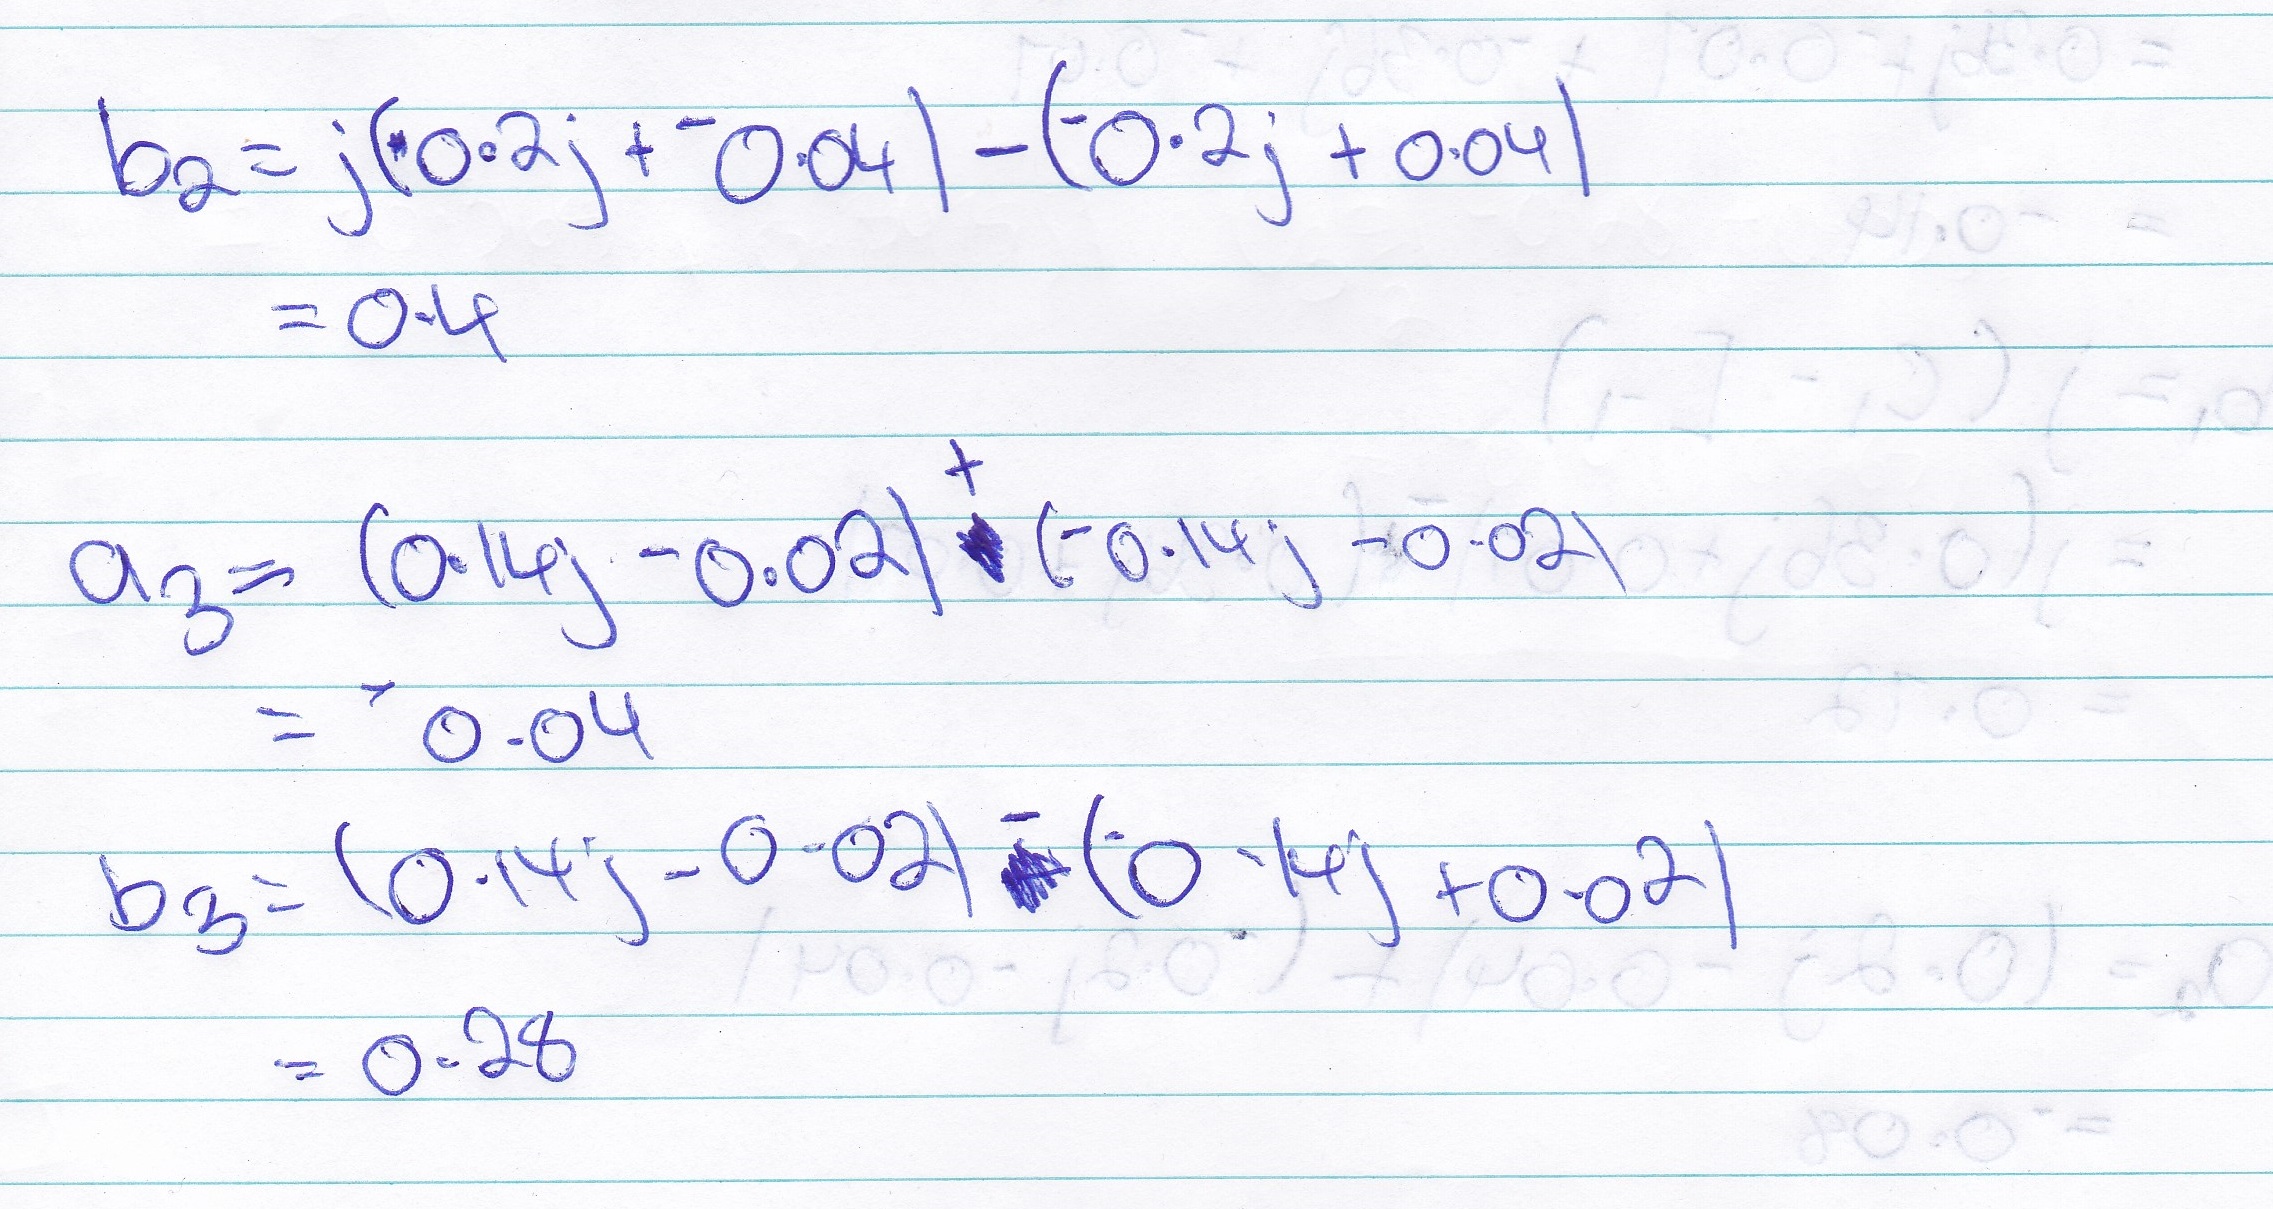 b₂ = j(0.2j + ⁻0.04) - (⁻0.2j + 0.04)
= 0.4
a₃ = (0.14j - 0.02) + (⁻0.14j - 0.02)
= ⁻0.04
b₃ = (0.14j - 0.02) - (⁻0.14j + 0.02)
= 0.28